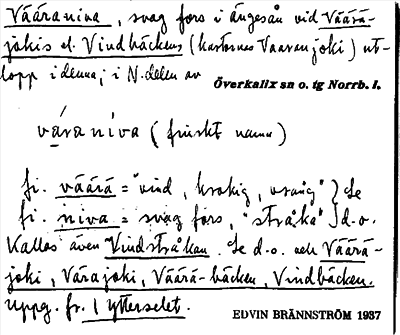 Vääraniva, svag fors i ängesån vid Väärä-
jokis el. Vindbäckens (kartornas Vaaranjoki) ut-
lopp i denna; i N. delen av
Överkalix sn o. tg Norrb. l.
våranıva (finskt namn)
fi. väärä = "vind, krokig, vrång" } Se
fi. niva = svag fors, "stråka" } d.o.
Kallas även Vindstråkan. Se d.o. och Väärä-
joki, Värajoki, Väärä-bäcken, Vindbäcken.
Uppg. fr. 1 Ytterselet.
EDVIN BRÄNNSTRÖM 1937